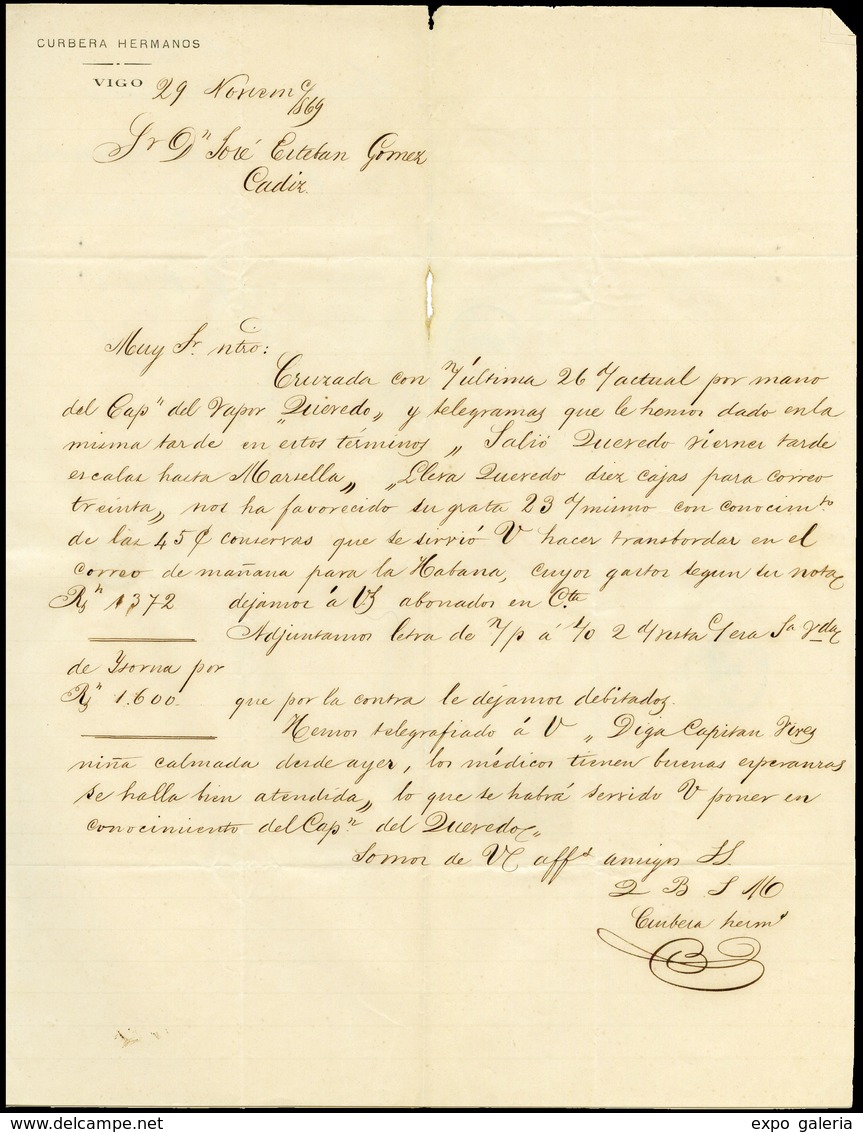 CURBERA HERMANOS
VIGO 29 Noviem e/869
Sr Dn José Esteban Gomez
Cadiz.
Muy Sr. ntro:
Cruzada con n/última 26 d/actual por mano
del Capn del Vapor „Quevedo„ y telegramas que le hemos dado en la
misma tarde en estos términos „Salió Quevedo viernes tarde
escalas hasta Marsella„ „Lleva Quevedo diez cajas para correo
treinta„ nos ha favorecido su grata 23 d/mismo con conocimto
de las 45 C conservas que se sirvió V hacer transbordar en el
correo de mañana para la Habana, cuyos gastos segun su nota
Rsn 1372 dejamos á V abonados en Cta
Adjuntamos letra de n/p á s/o 2 d/vista c/ esa Sa Vda
de Ysorna por
Rsn 1.600. que por la contra le dejamos debitados.
Hemos telegrafiado á V „Diga Capitan Vives
niña calmada desde ayer, los médicos tienen buenas esperanzas
se halla bien atendida„ lo que se habrá servido V poner en
conocimiento del Capn del Quevedo„
Somos de V affs amigos SS.
Q B S M
Curbera herms
expo galeria